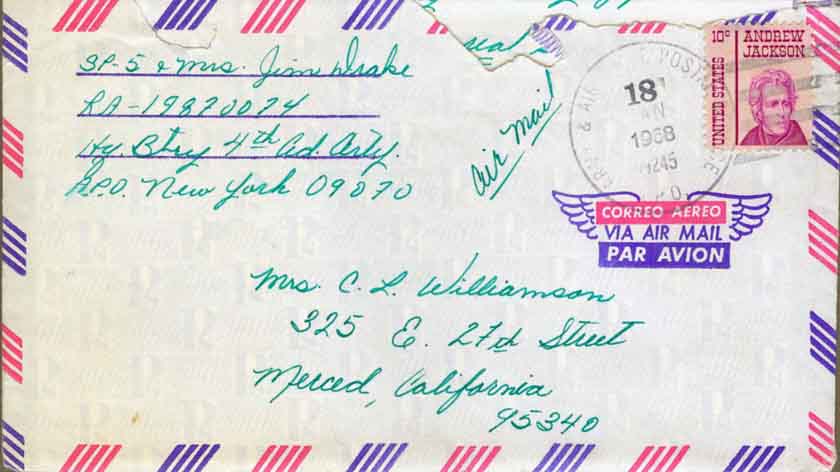 SP-5 & Mrs. Jim Drake
RA-19820074
Hq. Btry 4th Ad. Arty.
A.P.O. New York 09070
Air Mail
18
1968
ARMY & AIR
POSTAL
10¢ ANDREW JACKSON
UNITED STATES
CORREO AEREO
VIA AIR MAIL
PAR AVION
Mrs. C. L. Williamson
325 E. 27th Street
Merced, California
95340